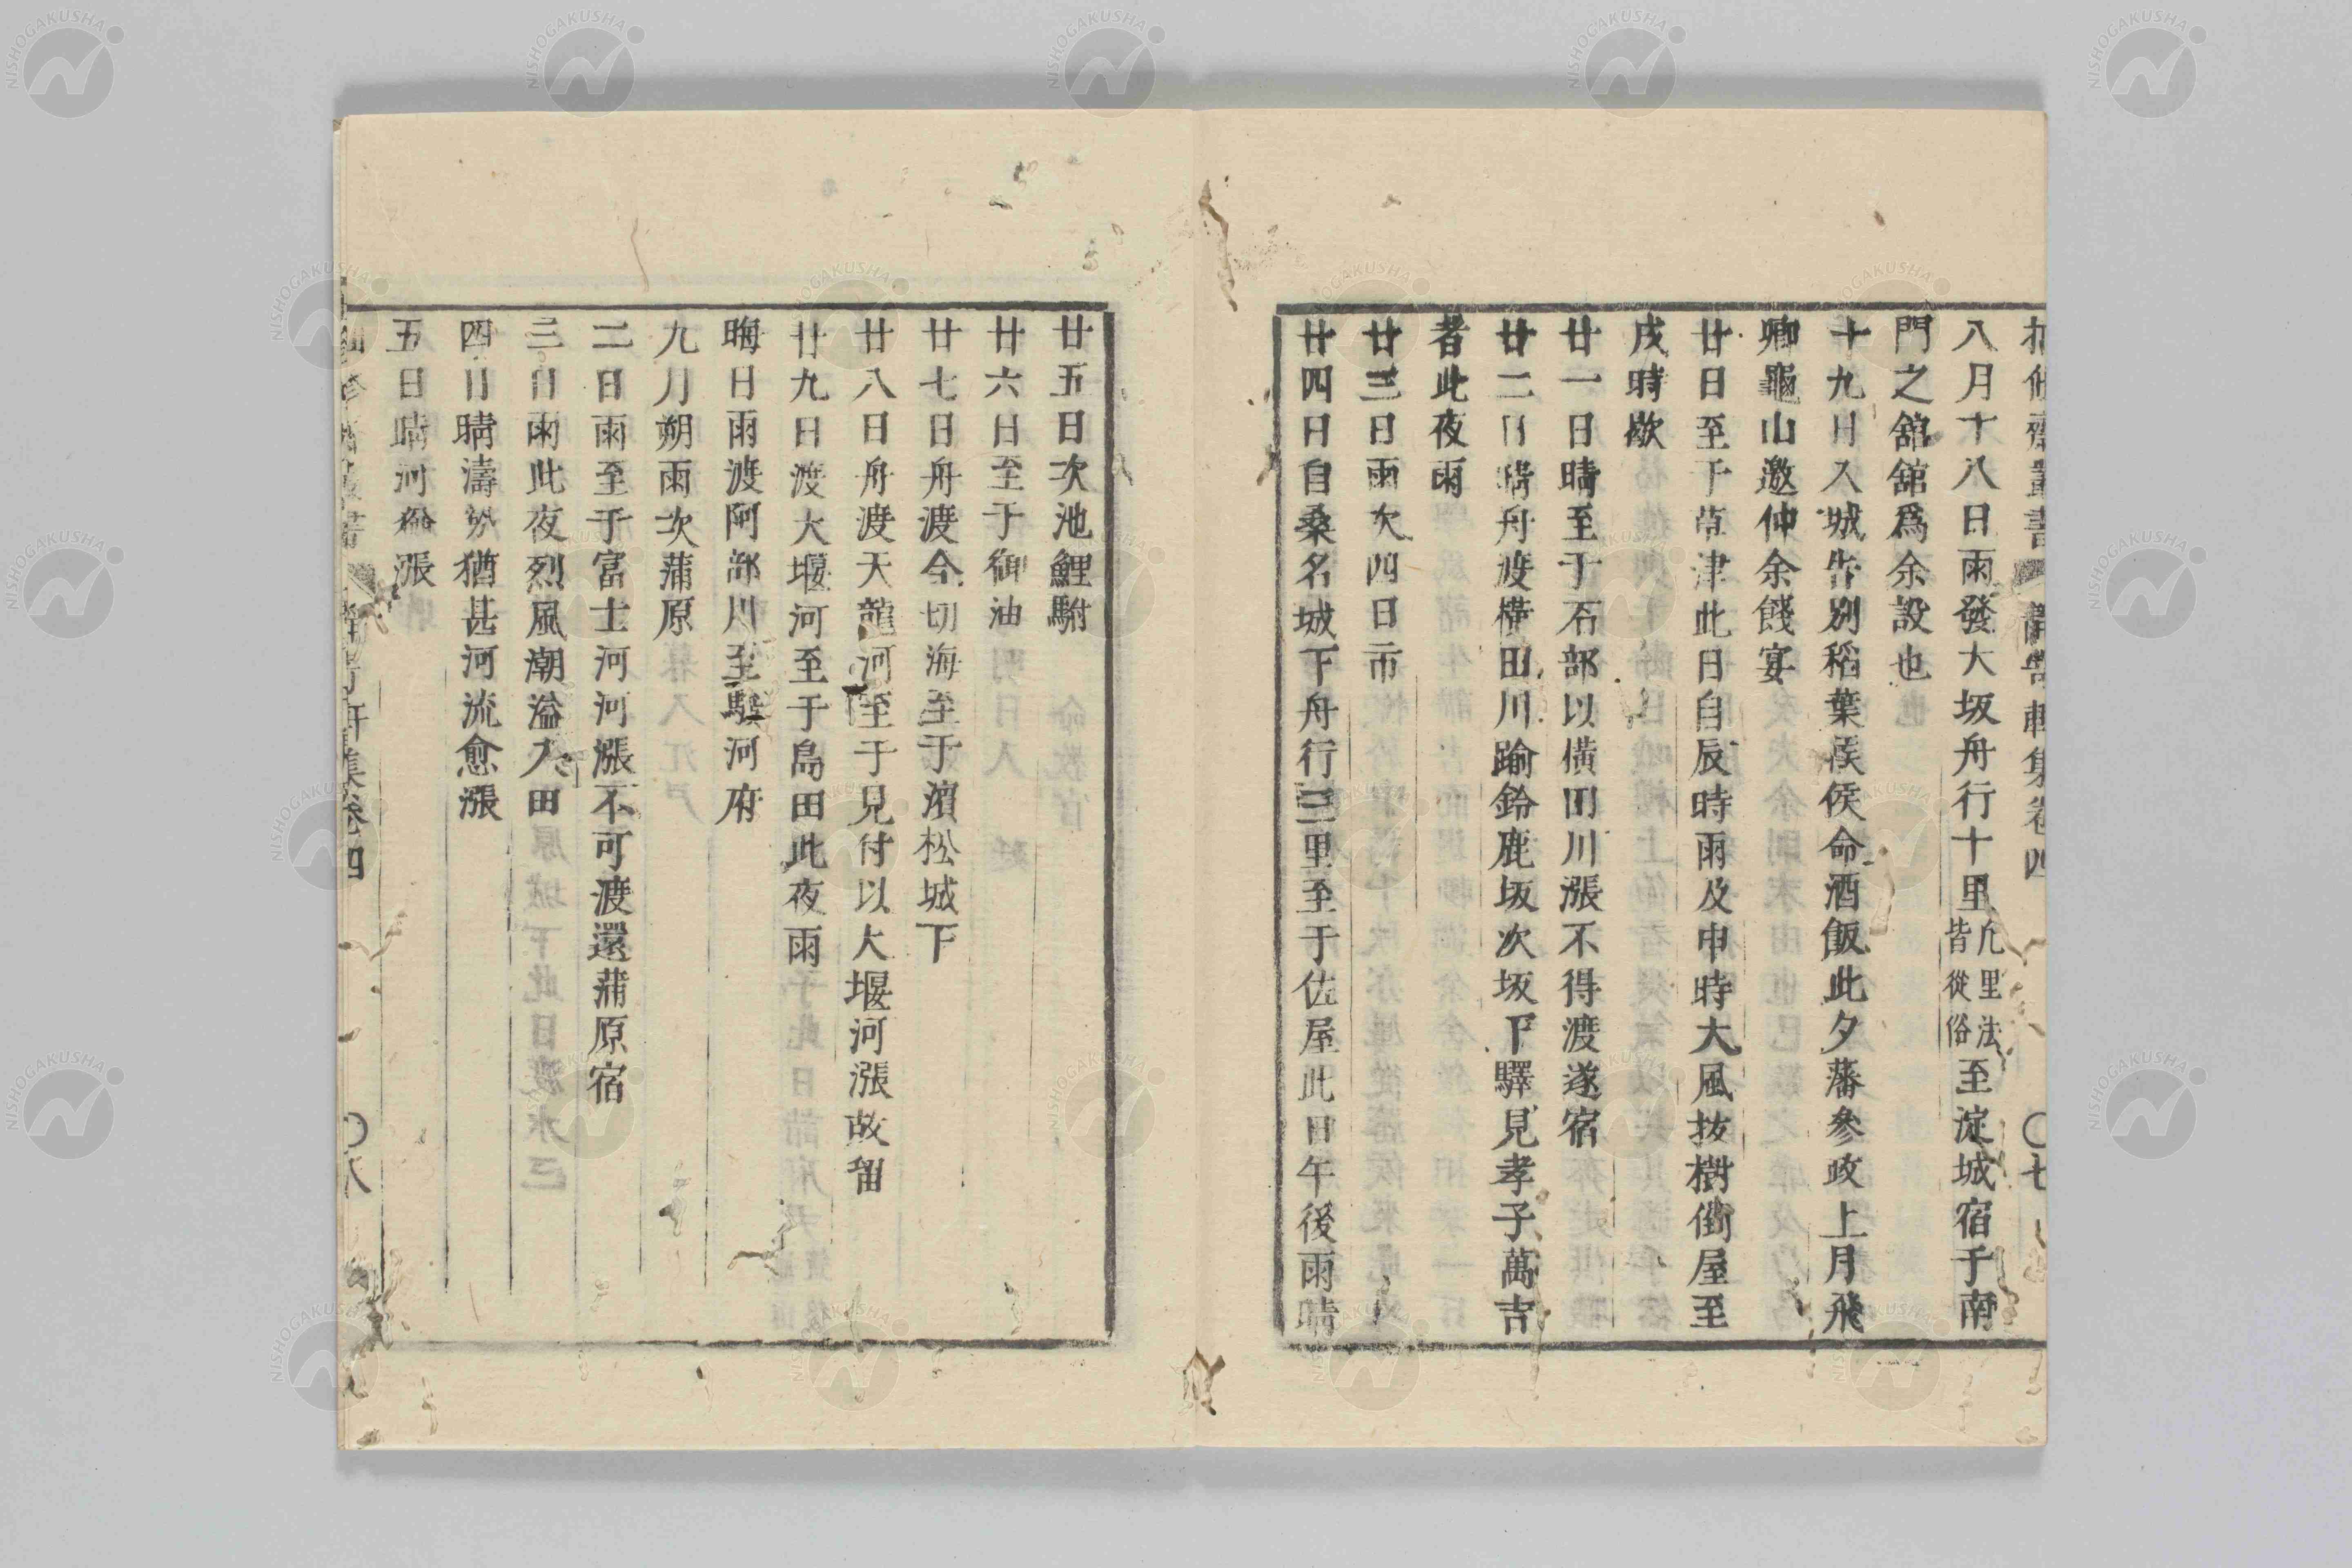 八月十八日雨發大坂舟行十里凢里法皆從俗至淀城宿于南
門之舘舘爲余設也
十九日入城告別稻葉侯侯命酒飯此夕藩參政上月飛
卿龜山邀仲余餞宴
廿日至于草津此日自辰時雨及申時大風抜樹倒屋至
戌時歇
廿一日晴至于石部以横田川漲不得渡遂宿
廿二日晴舟渡横田川踰鈴鹿坂次坂下驛見孝子萬吉
者此夜雨
廿三日雨次四日市
廿四日自桑名城下舟行三里至于佐屋此日午後雨晴
廿五日次池鯉鮒
廿六日至于御油
廿七日舟渡今切海至于濵松城下
廿八日舟渡天龍河至于見付以大堰河漲故留
廿九日渡大堰河至于島田此夜雨
晦日雨渡阿部川至駿河府
九月朔雨次蒲原
二日雨至于富士河河漲不可渡還蒲原宿
三日雨此夜烈風潮溢入田
四日晴濤勢猶甚河流愈漲
五日晴河愈漲
集卷四
〇八